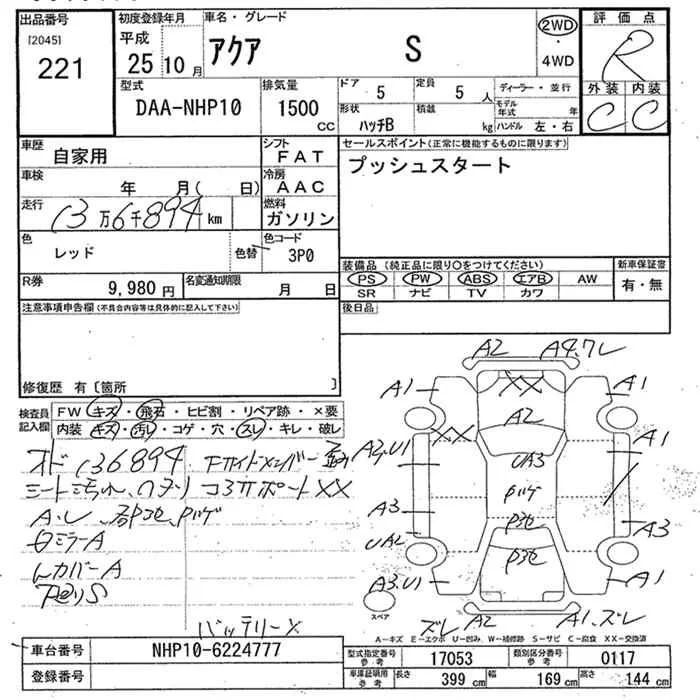 出品番号
[2045]
221
初度登録年月
平成
25 10 月
車名・グレード
アクア S
2WD
・
4WD
評価点
R
外装 内装
C C
型式
DAA-NHP10
排気量
1500
CC
ドア 5
定員 5 人
形状 ハッチB
積載 kg
ディーラー・並行
モデル年式 年
ハンドル 左・右
車歴 自家用
シフト FAT
車検 年 月( 日)
冷房 AAC
走行 13万6千894 km
燃料 ガソリン
色 レッド
色替
色コード 3P0
R券 9,980 円
名変通知期限 月 日
セールスポイント(正常に機能するものに限ります)
プッシュスタート
装備品(純正品に限り○をつけてください)
PS PW ABS エアB AW
SR ナビ TV カワ
新車保証書
有・無
後日品
注意事項申告欄(不具合内容等は具体的に記入して下さい)
修復歴 有〔箇所 〕
検査員記入欄
FW キズ・飛石・ヒビ割・リペア跡・×要
内装 キズ・汚レ・コゲ・穴・スレ・キレ・破レ
オド136894
シート汚れ、
コアサポートXX
ミラーA
カバーA
バッテリー×
A2
A1
XX
A2
A1
XX
A2,U1
UA3
A1
A3
A3
UA2
A3.U1
A1
ズレ
A2
A1.ズレ
スペア
A-キズ E-エクボ U-凹み W-補修跡 S-サビ C-腐食 XX-交換済
車台番号 NHP10-6224777
登録番号
型式指定番号 参考 17053
類別区分番号 参考 0117
車庫証明用 参考
長さ 399 cm
幅 169 cm
高さ 144 cm